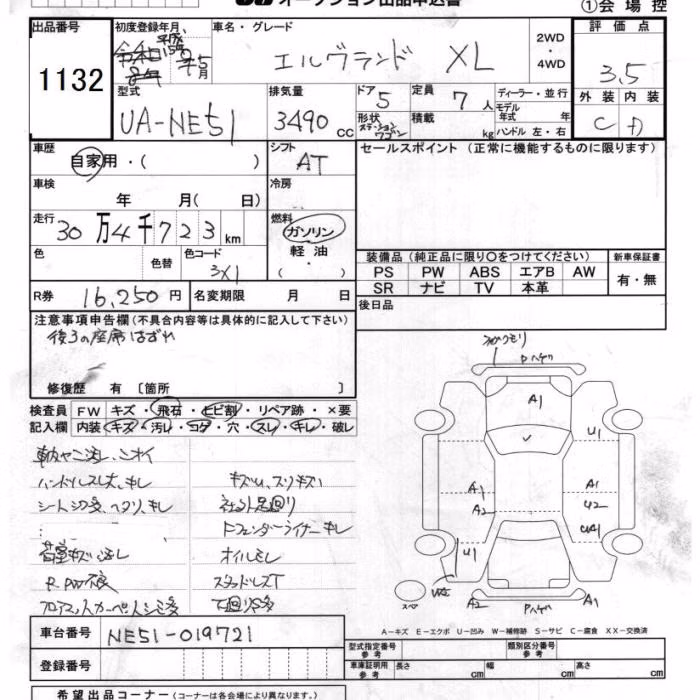 オークション出品申込書
①会場控
出品番号 1132
初度登録年月 平成15年5月
車名・グレード エルグランド XL
2WD・4WD
評価点 3.5
型式 UA-NE51
排気量 3490 CC
ドア 5
形状 ステーションワゴン
定員 7人
積載 kg
ディーラー・並行
モデル年式 年
ハンドル 左・右
外装 C
内装 D
車歴 自家用・( )
シフト AT
車検 年 月( 日)
冷房
走行 30万4千723km
燃料 ガソリン・軽油・( )
色 色替
色コード 3X1
R券 16,250円
名変期限 月 日
セールスポイント (正常に機能するものに限ります)
装備品 (純正品に限り○をつけてください)
PS PW ABS エアB AW
SR ナビ TV 本革
新車保証書 有・無
後日品
注意事項申告欄 (不具合内容等は具体的に記入して下さい)
後3の座席はずれ
修復歴 有 [箇所 ]
検査員記入欄 FW キズ・飛石・ヒビ割・リペア跡・×要
内装 キズ・汚れ・コゲ・穴・スレ・キレ・破レ
車内ヤニ汚レ、ニオイ
ハンドルスレ大、キレ
シートシワ多、ヘタリ、キレ
荷室キズ・汚レ
キズU、スリキズ
フェンダーライナーキレ
オイルモレ
スタッドレスT
下回りS多
フロアマットカーペットシミ多
Pハゲ
A1
U1
A1
A2
A1
U2
U1
A2
Pハゲ
スペア
A-キズ E-エクボ U-凹み W-補修跡 S-サビ C-腐食 XX-交換済
車台番号 NE51-019721
登録番号
型式指定番号 参考
類別区分番号 参考
車庫証明用 参考 長さ cm 幅 cm 高さ cm
希望出品コーナー (コーナーは各会場により異なります。)